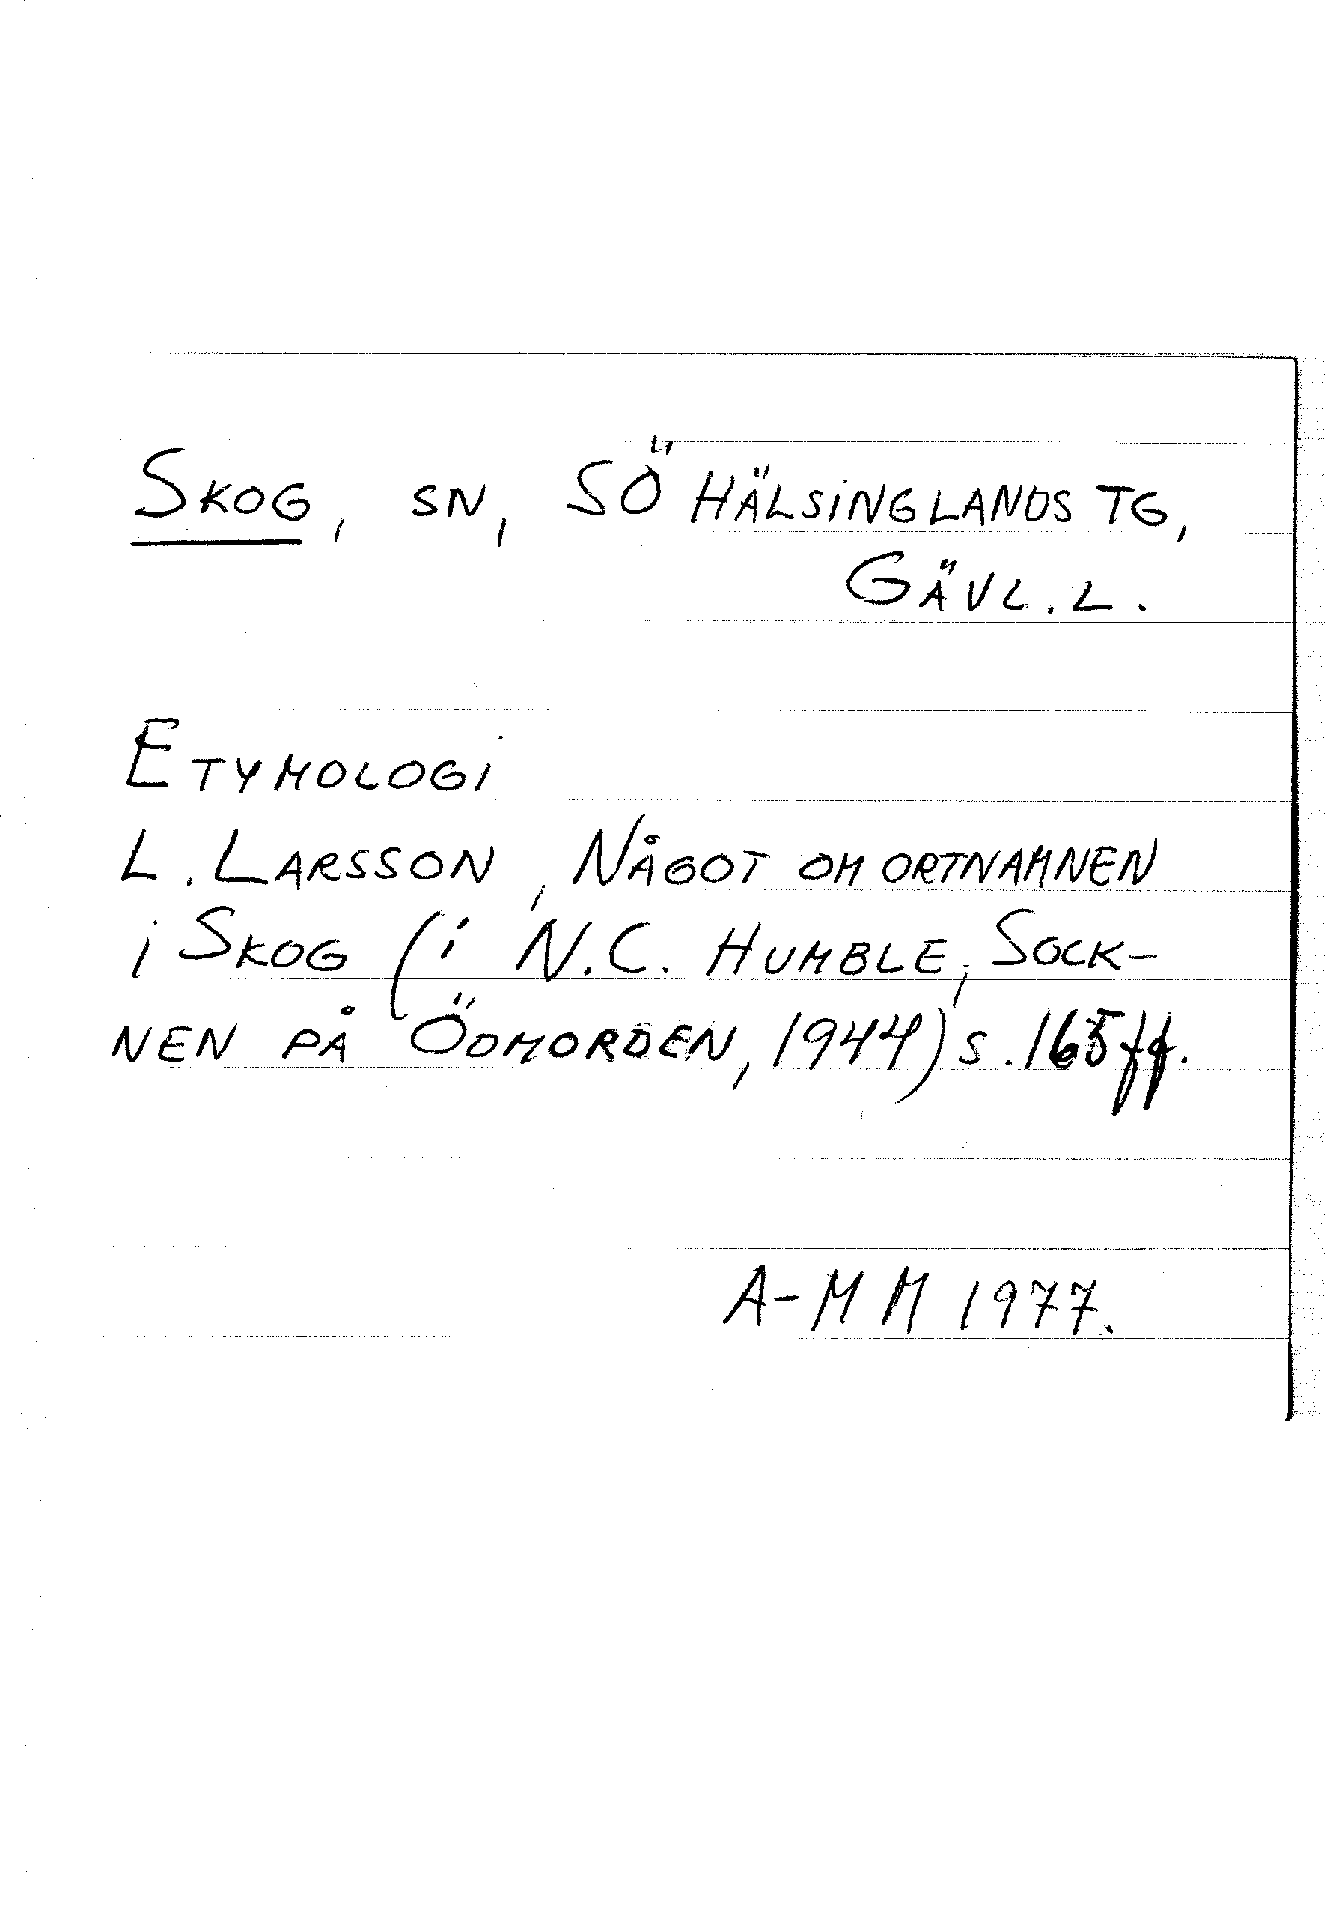 Skog, sn, SÖ Hälsinglands tg,
Gävl. l.
Etymologi
L. Larsson, Något om ortnamnen
i Skog (i N.C. Humble, Sock-
nen på Ödmorden, 1944) s. 165 ff.
A-M M 1977.